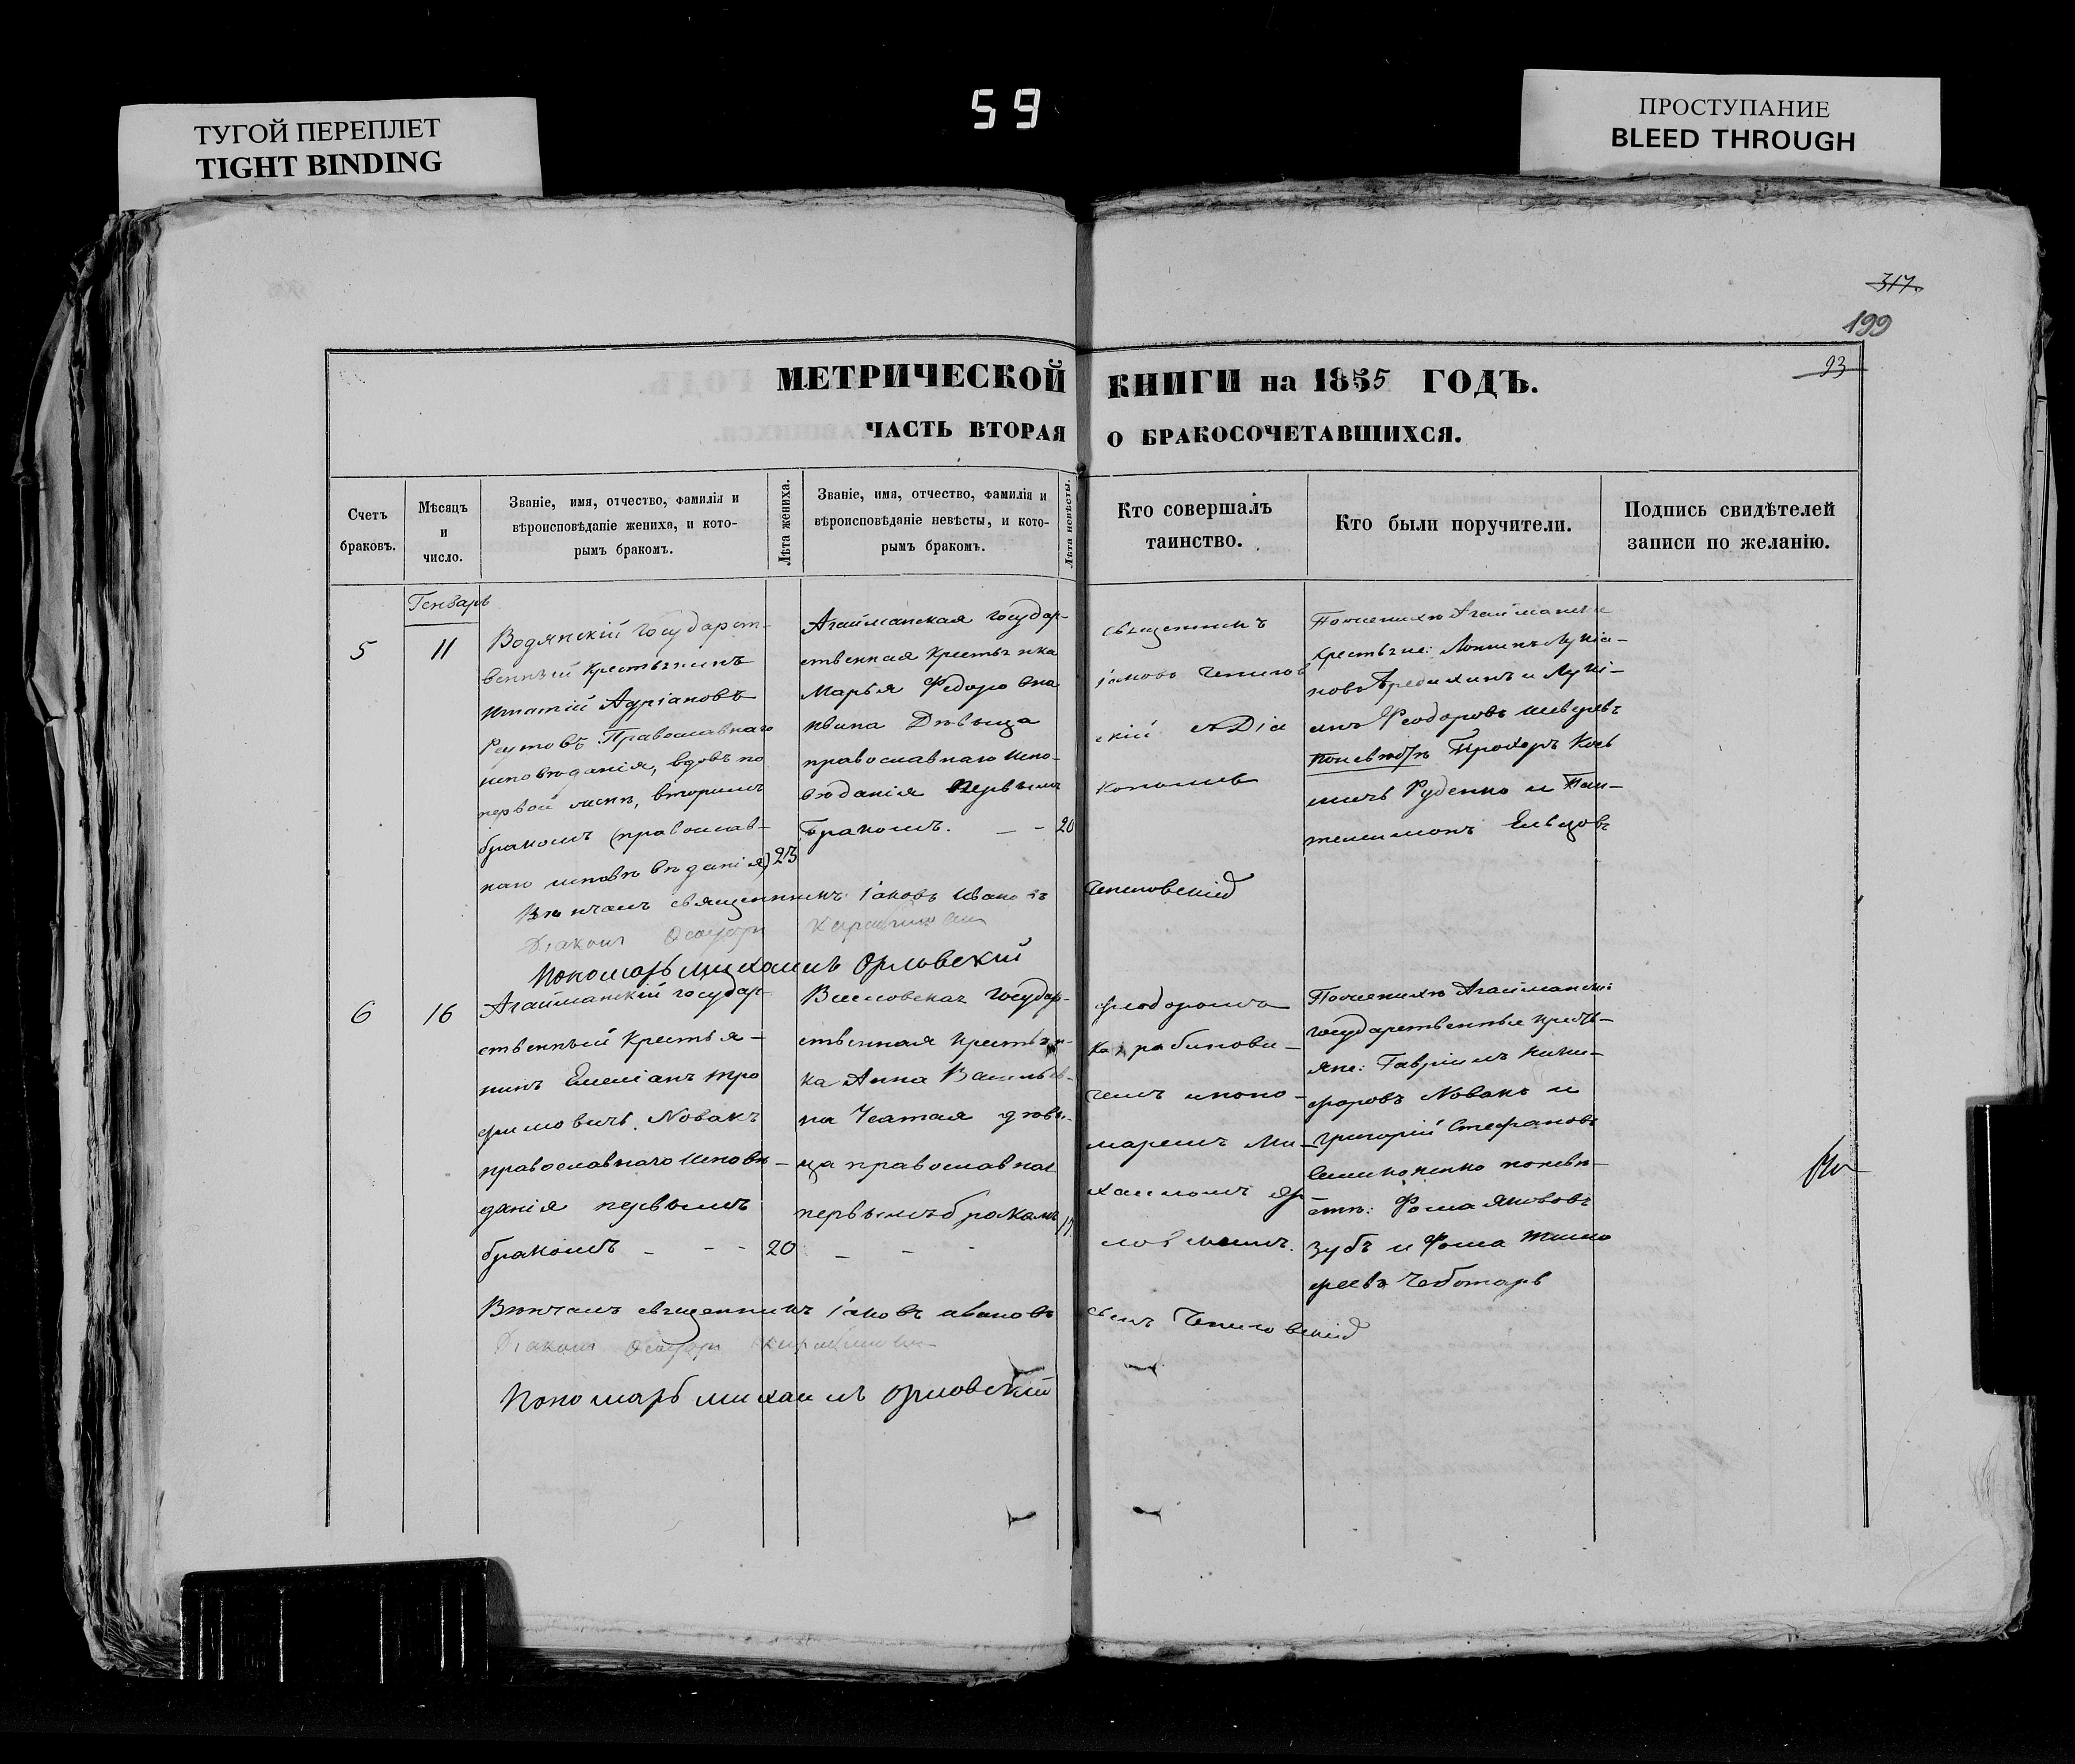 ТУГОЙ ПЕРЕПЛЕТ
TIGHT BINDING
59
ПРОСТУПАНИЕ
BLEED THROUGH
317.
199
93
МЕТРИЧЕСКОЙ КНИГИ на 1855 ГОДЪ.
ЧАСТЬ ВТОРАЯ О БРАКОСОЧЕТАВШИХСЯ.
Счетъ
браковъ.
Мѣсяцъ
и
число.
Званіе, имя, отчество, фамилія и
вѣроисповѣданіе жениха, и кото-
рымъ бракомъ.
Лѣта жениха.
Званіе, имя, отчество, фамилія и
вѣроисповѣданіе невѣсты, и кото-
рымъ бракомъ.
Лѣта невѣсты.
Кто совершалъ
таинство.
Кто были поручители.
Подпись свидѣтелей
записи по желанію.
Генваръ
5
11
Водянскій Государст-
венный крестьянинъ
Игнатій Адріановъ
Реутовъ Православнаго
исповѣданія, вдовъ по
первой женѣ, вторымъ
бракомъ (православ-
наго исповѣданія)
23
Агайманская государ-
ственная крестьянка
Марья Федоровна
Дѣвица
православнаго испо-
вѣданія первымъ
бракомъ. — -
20
священникъ
іаковъ Чепигов
скій
По женихѣ Агайманскіе
крестьяне: Логинъ Лукіа-
новъ и Лукі-
анъ Феодоровъ
По невѣстѣ Прохоръ
Руденко и Пан-
телимонъ
Вѣнчалъ священникъ Іаковъ Ивановъ Чепиговскій
Діаконъ Феодоръ
Пономарь Михаилъ Орловскій
6
16
Агайманскій государ-
ственный крестья-
нинъ Емеліанъ Тро
фимовичъ Новакъ
православнаго исповѣ-
данія первымъ
бракомъ - - -
20
государ-
ственная крестьян-
ка Анна Василь-
на дѣви-
ца православная
первымъ бракомъ
- - -
Феодоромъ
Карабинови-
чемъ и поно-
маремъ Ми-
хаиломъ Ор
ловскимъ.
По женихѣ Агайманскіе
государственные кресть-
яне: Гавріилъ Ники-
форовъ Новакъ и
Григорій Стефановъ
по невѣ-
стѣ: Фома Якововъ
Зубъ и Фома Тимо
феевъ Чеботарь
Вѣнчалъ священникъ Іаковъ Ивановъ сынъ Чепиговскій
Діаконъ Феодоръ
Пономарь Михаилъ Орловскій